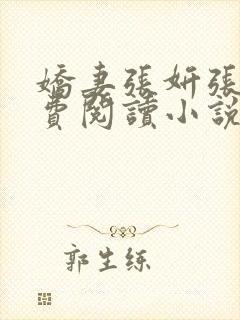 嬌妻張妍張
費閱讀小説
郭生練